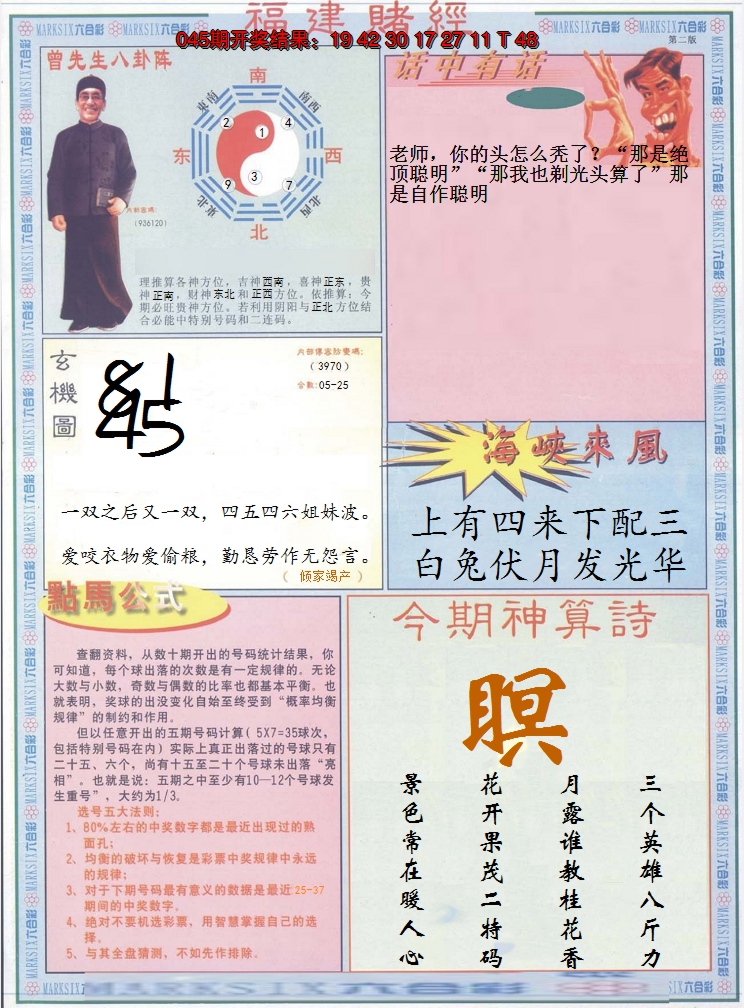 福建賭經
045期开奖结果：19 42 30 17 27 11 T 48
MARKSIX六合彩
第二版
曾先生八卦阵
南
東南
南西
东
西
2
1
4
9
3
7
東北
北西
北
内部密碼：
(936120)
理推算各神方位，吉神西南，喜神正东，贵
神正南，财神东北和正西方位。依推算：今
期必旺贵神方位。若利用阴阳与正北方位结
合必能中特别号码和二连码。
话中有话
老师，你的头怎么秃了？“那是绝
顶聪明”“那我也剃光头算了”那
是自作聪明
玄機圖
内部傳密防變碼：
（3970）
合数：05-25
一双之后又一双，四五四六姐妹波。
爱咬衣物爱偷粮，勤恳劳作无怨言。
（ 倾家竭产 ）
海峽來風
上有四来下配三
白兔伏月发光华
點馬公式
查翻资料，从数十期开出的号码统计结果，你
可知道，每个球出落的次数是有一定规律的。无论
大数与小数，奇数与偶数的比率也都基本平衡。也
就表明，奖球的出没变化自始至终受到“概率均衡
规律”的制约和作用。
但以任意开出的五期号码计算( 5X7=35球次，
包括特别号码在内）实际上真正出落过的号球只有
二十五、六个，尚有十五至二十个号球未出落“亮
相”。也就是说：五期之中至少有10—12个号球发
生重号”，大约为1/3。
选号五大法则：
1、80%左右的中奖数字都是最近出现过的熟
面孔；
2、均衡的破坏与恢复是彩票中奖规律中永远
的规律；
3、对于下期号码最有意义的数据是最近25-37
期间的中奖数字。
4、绝对不要机选彩票，用智慧掌握自己的选
择。
5、与其全盘猜测，不如先作排除。
今期神算詩
瞑
三个英雄八斤力
月露谁教桂花香
花开果茂二特码
景色常在暖人心